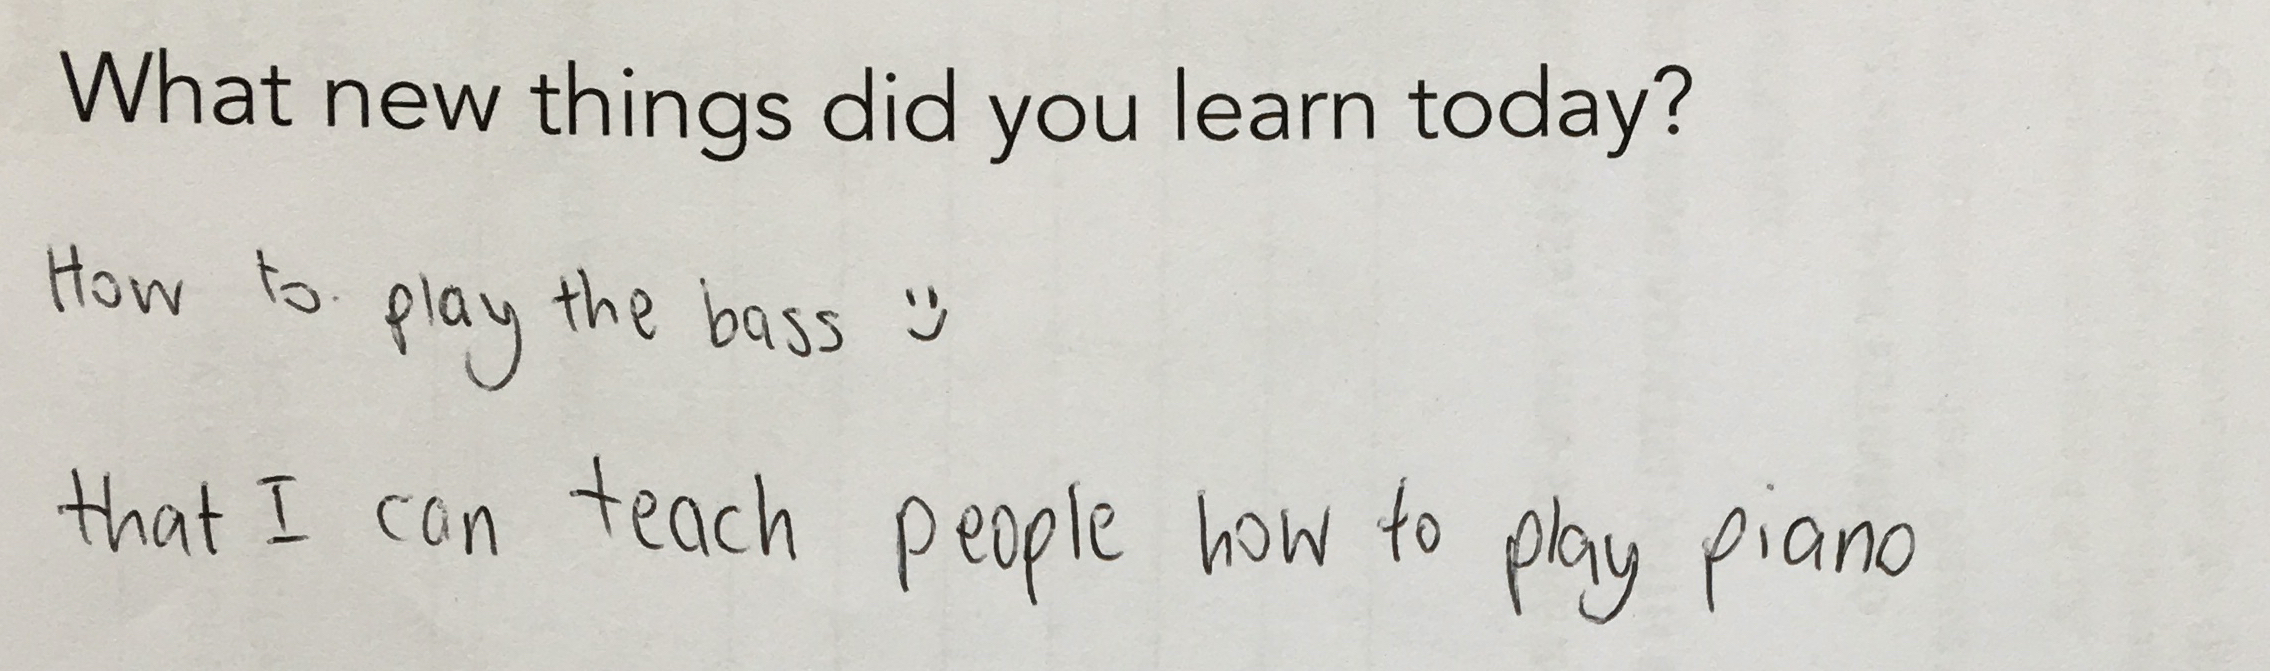 What new things did you learn today?
How to play the bass :)
that I can teach people how to play piano